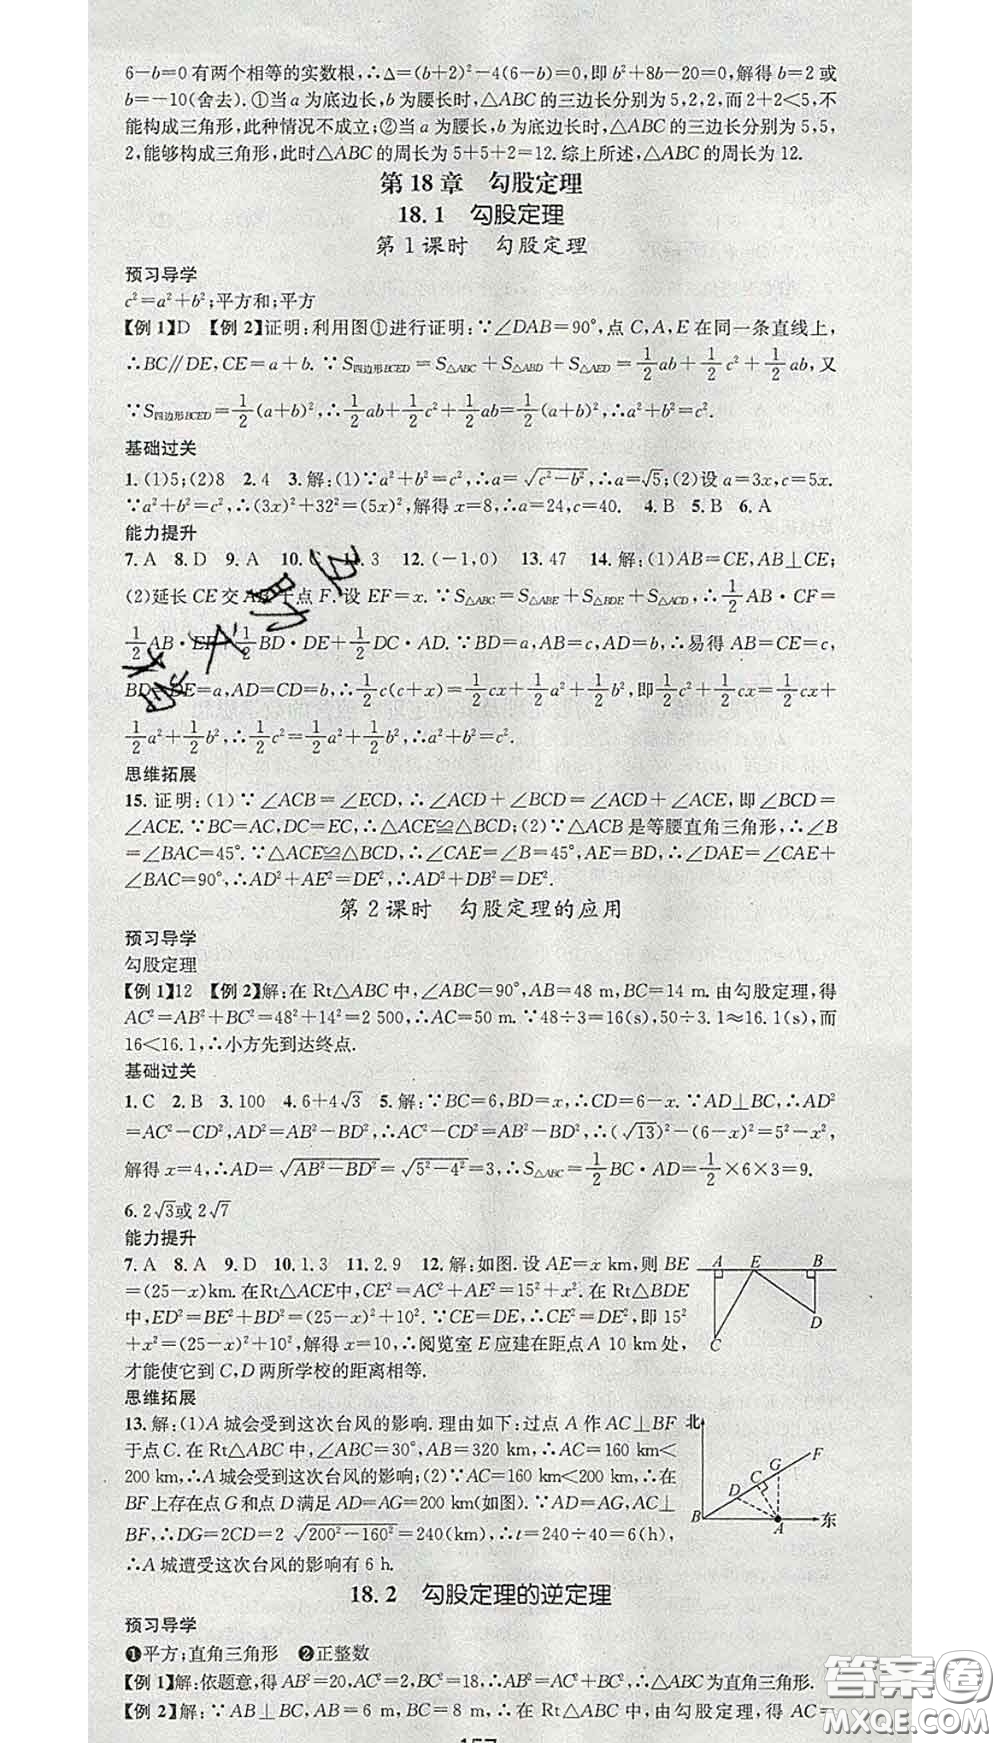 6－b＝0有两个相等的实数根,∴Δ＝(b＋2)²－4(6－b)＝0,即b²＋8b－20＝0,解得b＝2或
b＝－10(舍去).①当a为底边长,b为腰长时,△ABC的三边长分别为5,2,2,而2＋2＜5,不
能构成三角形,此种情况不成立;②当a为腰长,b为底边长时,△ABC的三边长分别为5,5,
2,能够构成三角形,此时△ABC的周长为5＋5＋2＝12.综上所述,△ABC的周长为12.
第18章 勾股定理
18.1 勾股定理
第1课时 勾股定理
预习导学
c²＝a²＋b²;平方和;平方
【例1】D 【例2】证明:利用图①进行证明:∵∠DAB＝90°,点C,A,E在同一条直线上,
∴BC∥DE,CE＝a＋b.∵S四边形BCED＝S△ABC＋S△ABD＋S△AED＝1/2ab＋1/2c²＋1/2ab,又
∵S四边形BCED＝1/2(a＋b)²,∴1/2ab＋1/2c²＋1/2ab＝1/2(a＋b)²,∴a²＋b²＝c².
基础过关
1.(1)5;(2)8 2.4 3.解:(1)∵a²＋b²＝c²,∴a＝√(c²－b²),∴a＝√5;(2)设a＝3x,c＝5x.
∵a²＋b²＝c²,∴(3x)²＋32²＝(5x)²,解得x＝8,∴a＝24,c＝40. 4.B 5.B 6.A
能力提升
7.A 8.D 9.A 10.C 11.3 12.(－1,0) 13.47 14.解:(1)AB＝CE,AB⊥CE;
(2)延长CE交AB于点F.设EF＝x.∵S△ABC＝S△ABE＋S△BDE＋S△ACD,∴1/2AB·CF＝
1/2AB·EF＋1/2BD·DE＋1/2DC·AD.∵BD＝a,AC＝c,AD＝b,∴易得AB＝CE＝c,
BD＝DE＝a,AD＝CD＝b,∴1/2c(c＋x)＝1/2cx＋1/2a²＋1/2b²,即1/2c²＋1/2cx＝1/2cx＋
1/2a²＋1/2b²,∴1/2c²＝1/2a²＋1/2b²,∴a²＋b²＝c².
思维拓展
15.证明:(1)∵∠ACB＝∠ECD,∴∠ACD＋∠BCD＝∠ACD＋∠ACE,即∠BCD＝
∠ACE.∵BC＝AC,DC＝EC,∴△ACE≌△BCD;(2)∵△ACB是等腰直角三角形,∴∠B
＝∠BAC＝45°.∵△ACE≌△BCD,∴∠CAE＝∠B＝45°,AE＝BD,∴∠DAE＝∠CAE＋
∠BAC＝90°,∴AD²＋AE²＝DE²,∴AD²＋DB²＝DE².
第2课时 勾股定理的应用
预习导学
勾股定理
【例1】12 【例2】解:在Rt△ABC中,∠ABC＝90°,AB＝48 m,BC＝14 m.由勾股定理,得
AC²＝AB²＋BC²＝48²＋14²＝2 500,∴AC＝50 m.∵48÷3＝16(s),50÷3.1≈16.1(s),而
16＜16.1,∴小方先到达终点.
基础过关
1.C 2.B 3.100 4.6＋4√3 5.解:∵BC＝6,BD＝x,∴CD＝6－x.∵AD⊥BC,∴AD²
＝AC²－CD²,AD²＝AB²－BD²,∴AC²－CD²＝AB²－BD²,∴(√13)²－(6－x)²＝5²－x²,
解得x＝4,∴AD＝√(AB²－BD²)＝√(5²－4²)＝3,∴S△ABC＝1/2BC·AD＝1/2×6×3＝9.
6.2√3或2√7
能力提升
7.A 8.A 9.D 10.1.3 11.2.9 12.解:如图.设AE＝x km,则BE
＝(25－x)km.在Rt△ACE中,CE²＝AC²＋AE²＝15²＋x².在Rt△BDE
中,ED²＝BE²＋BD²＝(25－x)²＋10².∵CE＝DE,∴CE²＝DE²,即15²
＋x²＝(25－x)²＋10²,解得x＝10,∴阅览室E应建在距点A 10 km处,
才能使它到C,D两所学校的距离相等.
A E B
D
C
思维拓展
13.解:(1)A城会受到这次台风的影响.理由如下:过点A作AC⊥BF
于点C.在Rt△ABC中,∠ABC＝30°,AB＝320 km,∴AC＝160 km＜
200 km,∴A城会受到这次台风的影响;(2)∵AC＝160 km＜200 km,∴在
BF上存在点G和点D满足AD＝AG＝200 km(如图).∵AD＝AG,AC⊥
BF,∴DG＝2CD＝2√(200²－160²)＝240(km),∴t＝240÷40＝6(h),
∴A城遭受这次台风的影响有6 h.
北
F
G
C
D
B A 东
18.2 勾股定理的逆定理
预习导学
❶平方;直角三角形 ❷正整数
【例1】解:依题意,得AB²＝20,AC²＝2,BC²＝18,∴AB²＝AC²＋BC²,∴△ABC为直角三角形.
【例2】解:∵AB⊥BC,AB＝6 m,BC＝8 m,∴在Rt△ABC中,由勾股定理,得AC＝
157
互助文稿
答案圈
MXQE.COM